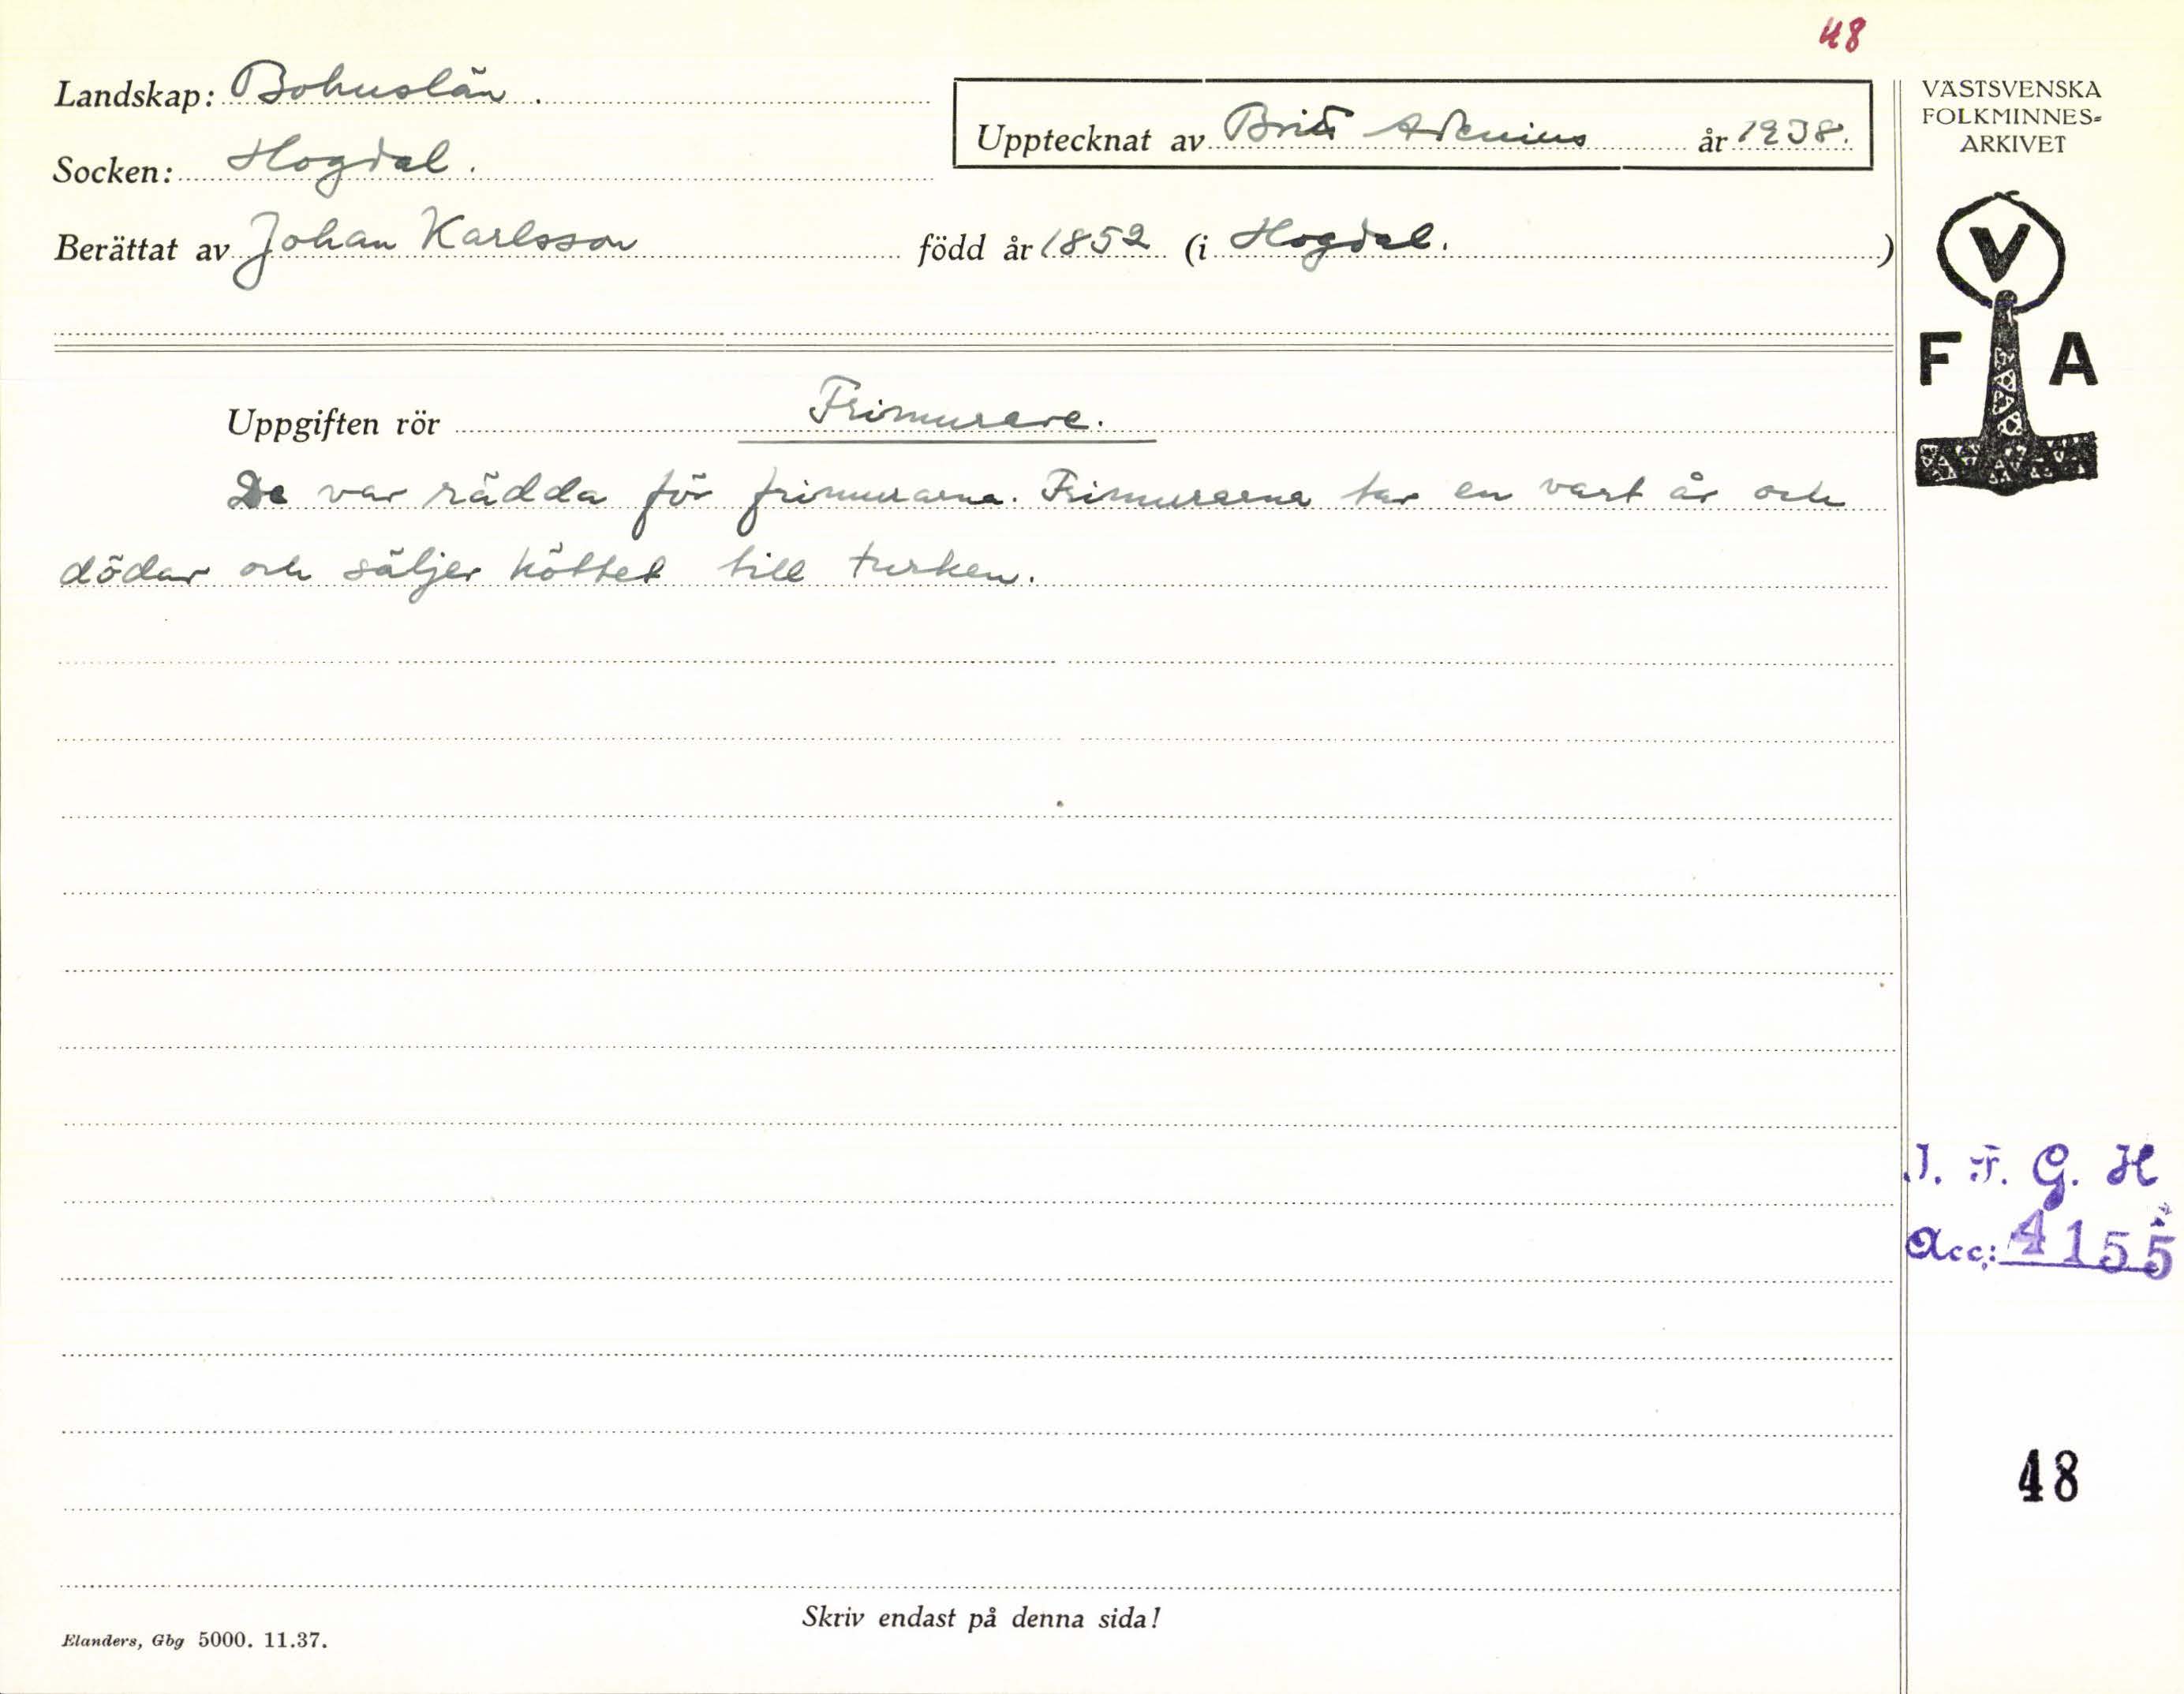 48
Landskap: Bohuslän.
Upptecknat av Britt Adenius år 1938.
Socken: Hogdal.
Berättat av Johan Karlsson född år 1852 (i Hogdal. )
VÄSTSVENSKA
FOLKMINNES=
ARKIVET
V
F A
Uppgiften rör Frimurare.
De var rädda för frimurarna. Frimurarna tar en vart år och
dödar och säljer köttet till turken.
I. F. G. H
Acc: 4155
48
Skriv endast på denna sida!
Elanders, Gbg 5000. 11.37.